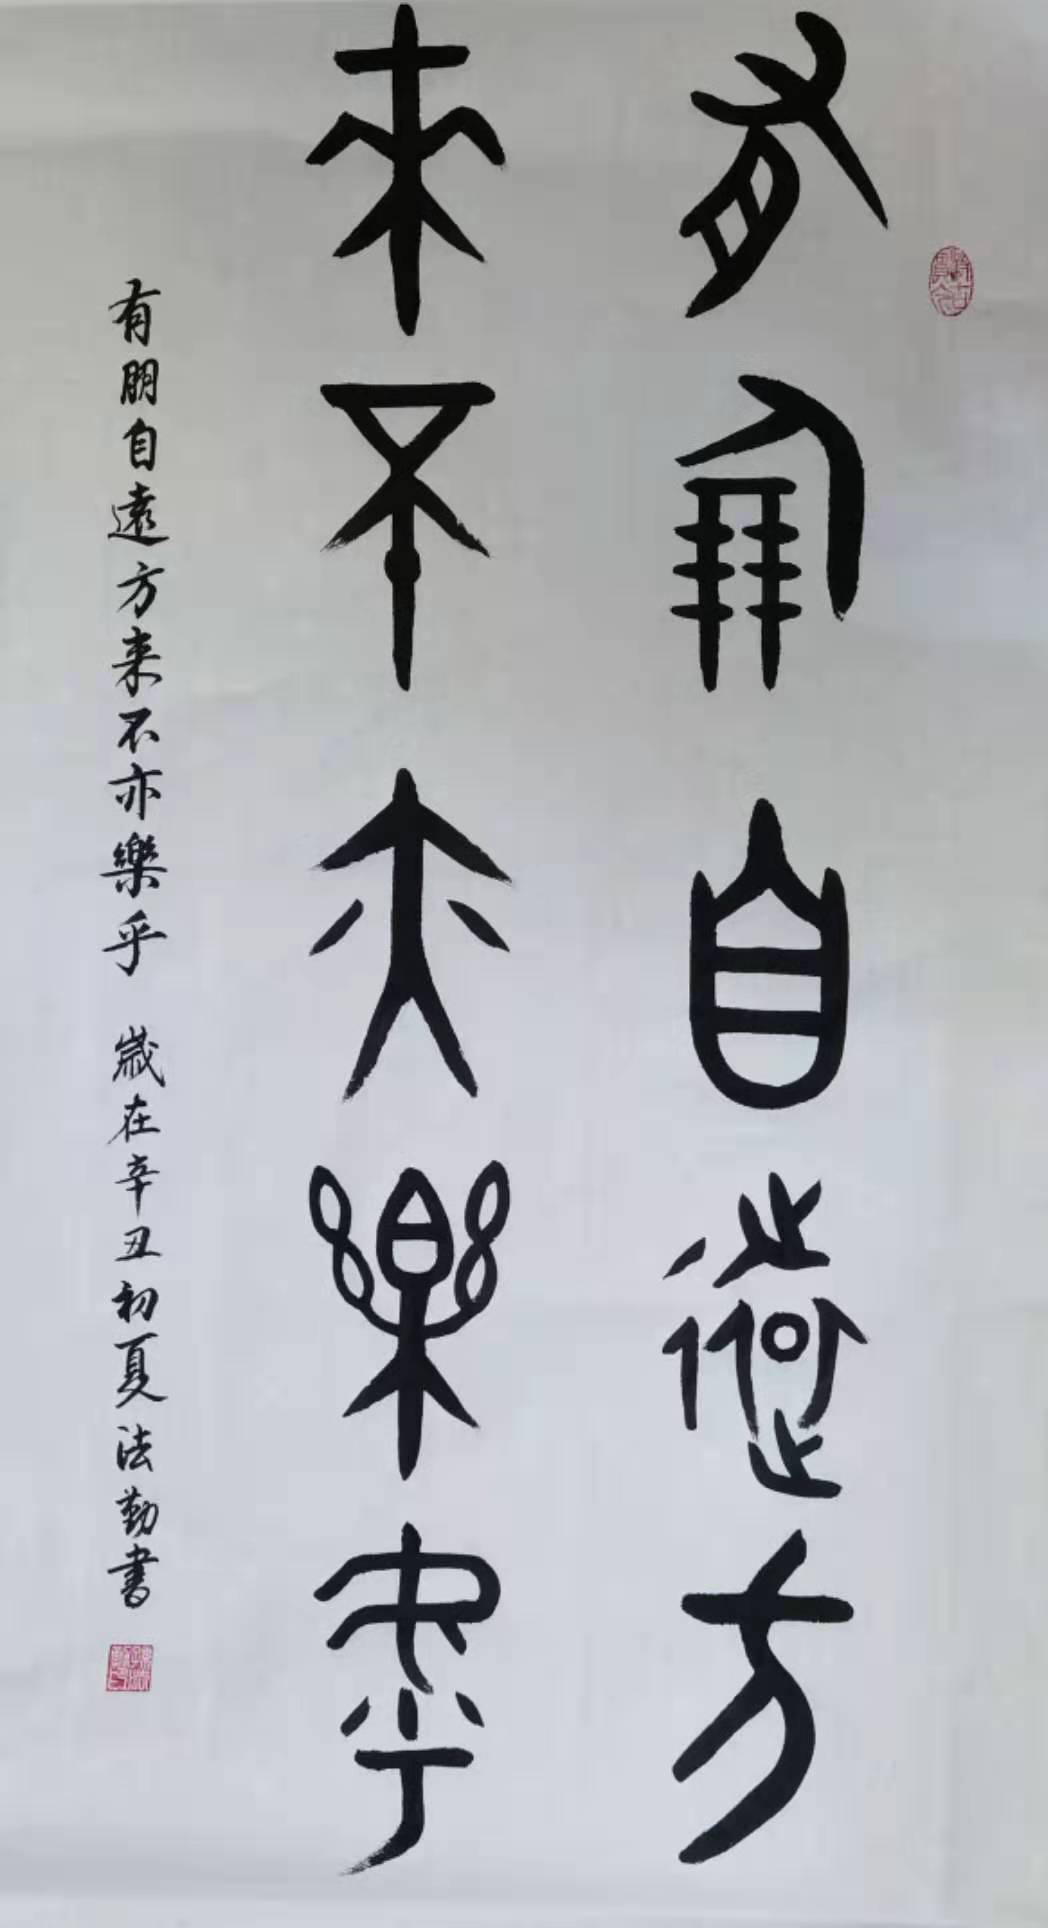 有朋自遠方
來不亦樂乎
有朋自遠方来不亦樂乎 歲在辛丑初夏法勤书